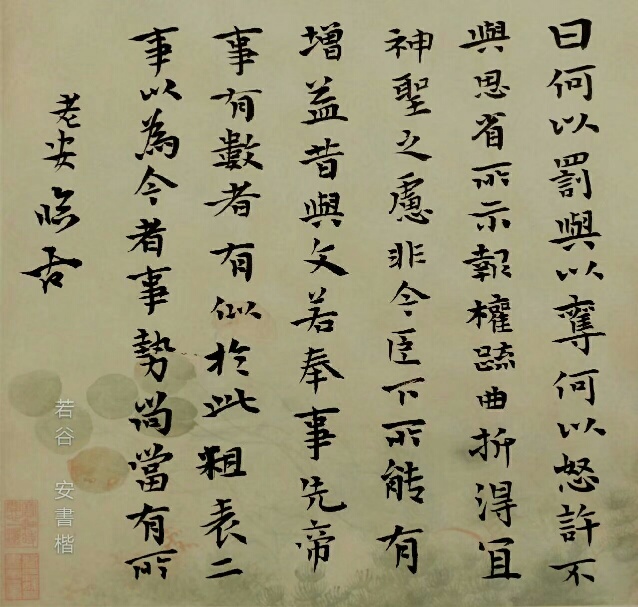 曰何以罰與以奪何以怒許不
與思省所示報權疏曲折得宜
神聖之慮非今臣下所能有
增益昔與文若奉事先帝
事有數者有似於此粗表二
事以為今者事勢尚當有所
老安臨
若谷 安書楷